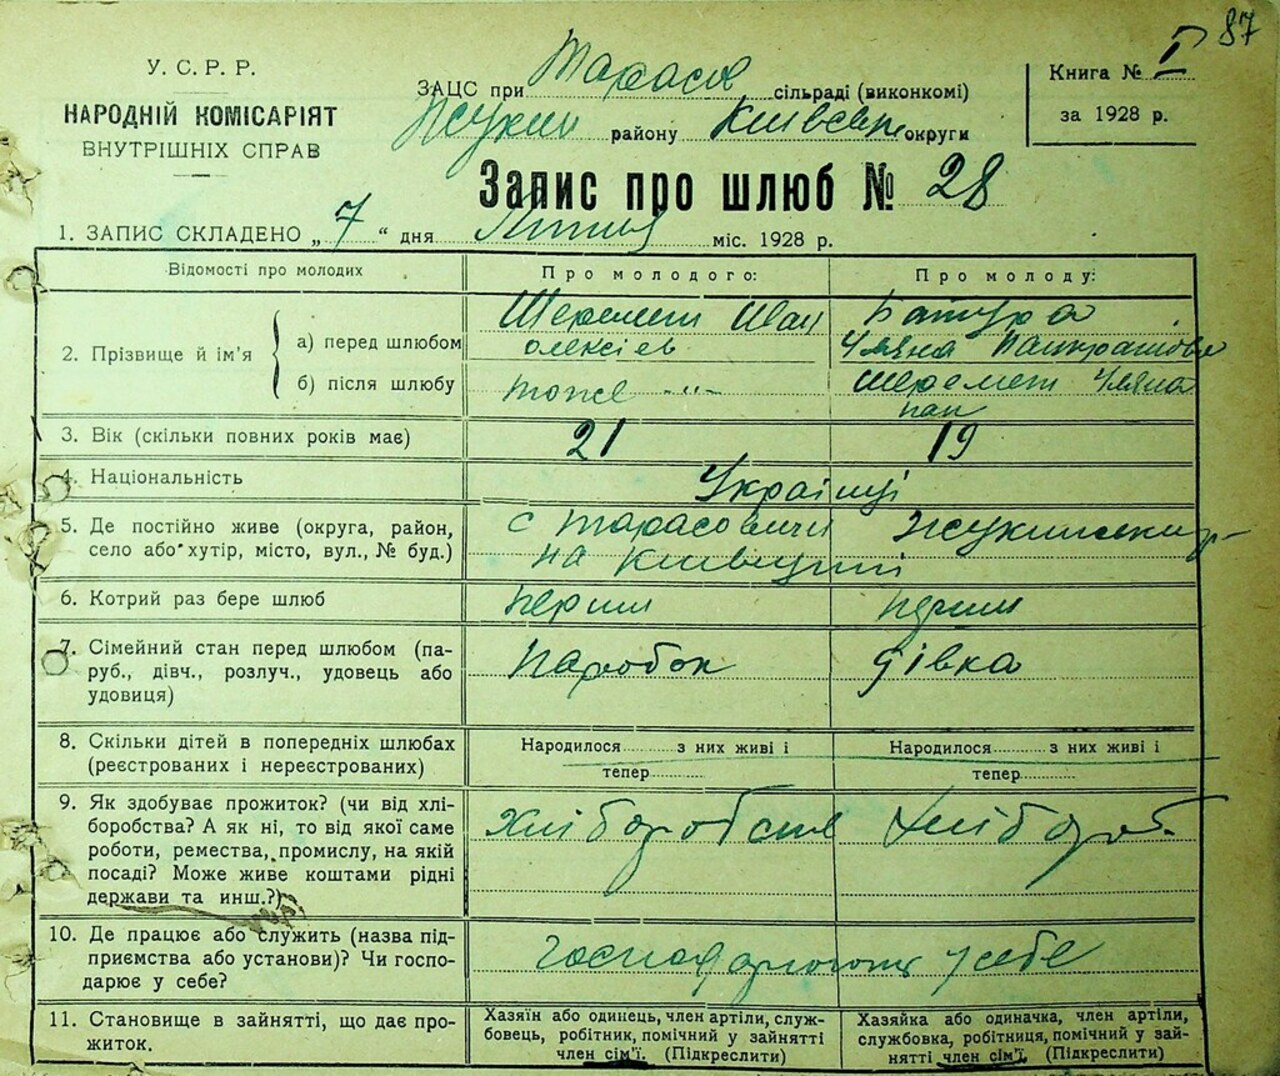 87
У. С. Р. Р.
НАРОДНІЙ КОМІСАРІЯТ
ВНУТРІШНІХ СПРАВ
ЗАЦС при Тарасов сільраді (виконкомі)
Жукин району Київськ округи
Книга № I
за 1928 р.
Запис про шлюб № 28
1. ЗАПИС СКЛАДЕНО „ 7 “ дня міс. 1928 р.
Відомості про молодих
Про молодого:
Про молоду:
2. Прізвище й ім'я
а) перед шлюбом
Шеремет Іван
олексіев
Батура
Уляна Панкратова
б) після шлюбу
тоже -"-
Шеремет Уляна
пан
3. Вік (скільки повних років має)
21
19
4. Національність
Українці
5. Де постійно живе (округа, район,
село або хутір, місто, вул., № буд.)
с Тарасовичи Жукинськи р-
на Київщині
6. Котрий раз бере шлюб
перши
перши
7. Сімейний стан перед шлюбом (па-
руб., дівч., розлуч., удовець або
удовиця)
Паробок
дівка
8. Скільки дітей в попередніх шлюбах
(реєстрованих і нереєстрованих)
Народилося з них живі і
тепер
Народилося з них живі і
тепер
9. Як здобуває прожиток? (чи від хлі-
боробства? А як ні, то від якої саме
роботи, ремества, промислу, на якій
посаді? Може живе коштами рідні
держави та инш.?)
Хліборобств
Хлібороб.
10. Де працює або служить (назва під-
приємства або установи)? Чи госпо-
дарює у себе?
господарюють у себе
11. Становище в зайнятті, що дає про-
житок.
Хазяїн або одинець, член артіли, служ-
бовець, робітник, помічний у зайнятті
член сім'ї. (Підкреслити)
Хазяйка або одиначка, член артіли,
службовка, робітниця, помічний у зай-
нятті член сім'ї. (Підкреслити)